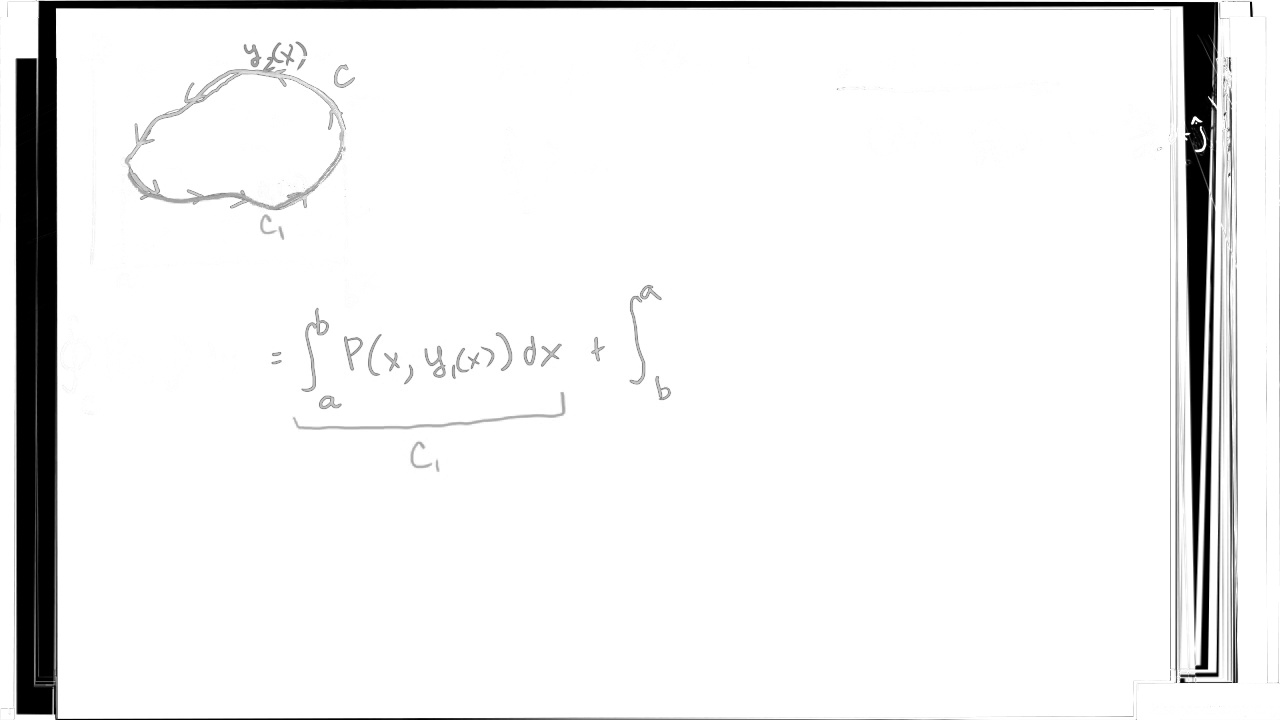 y₂(x)
C
C₁
= ∫ₐᵇ P(x, y₁(x)) dx + ∫_b^a
C₁